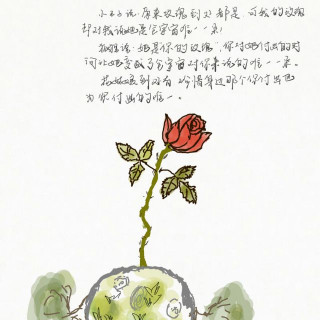 小王子说，原来玫瑰到处都是，可我的玫瑰
却对我说她是全宇宙唯一一朵！
狐狸说：她是你的玫瑰，你对她付出的时
间让她变成了全宇宙对你来说的唯一一朵。
你付出也
为你付出的唯一。